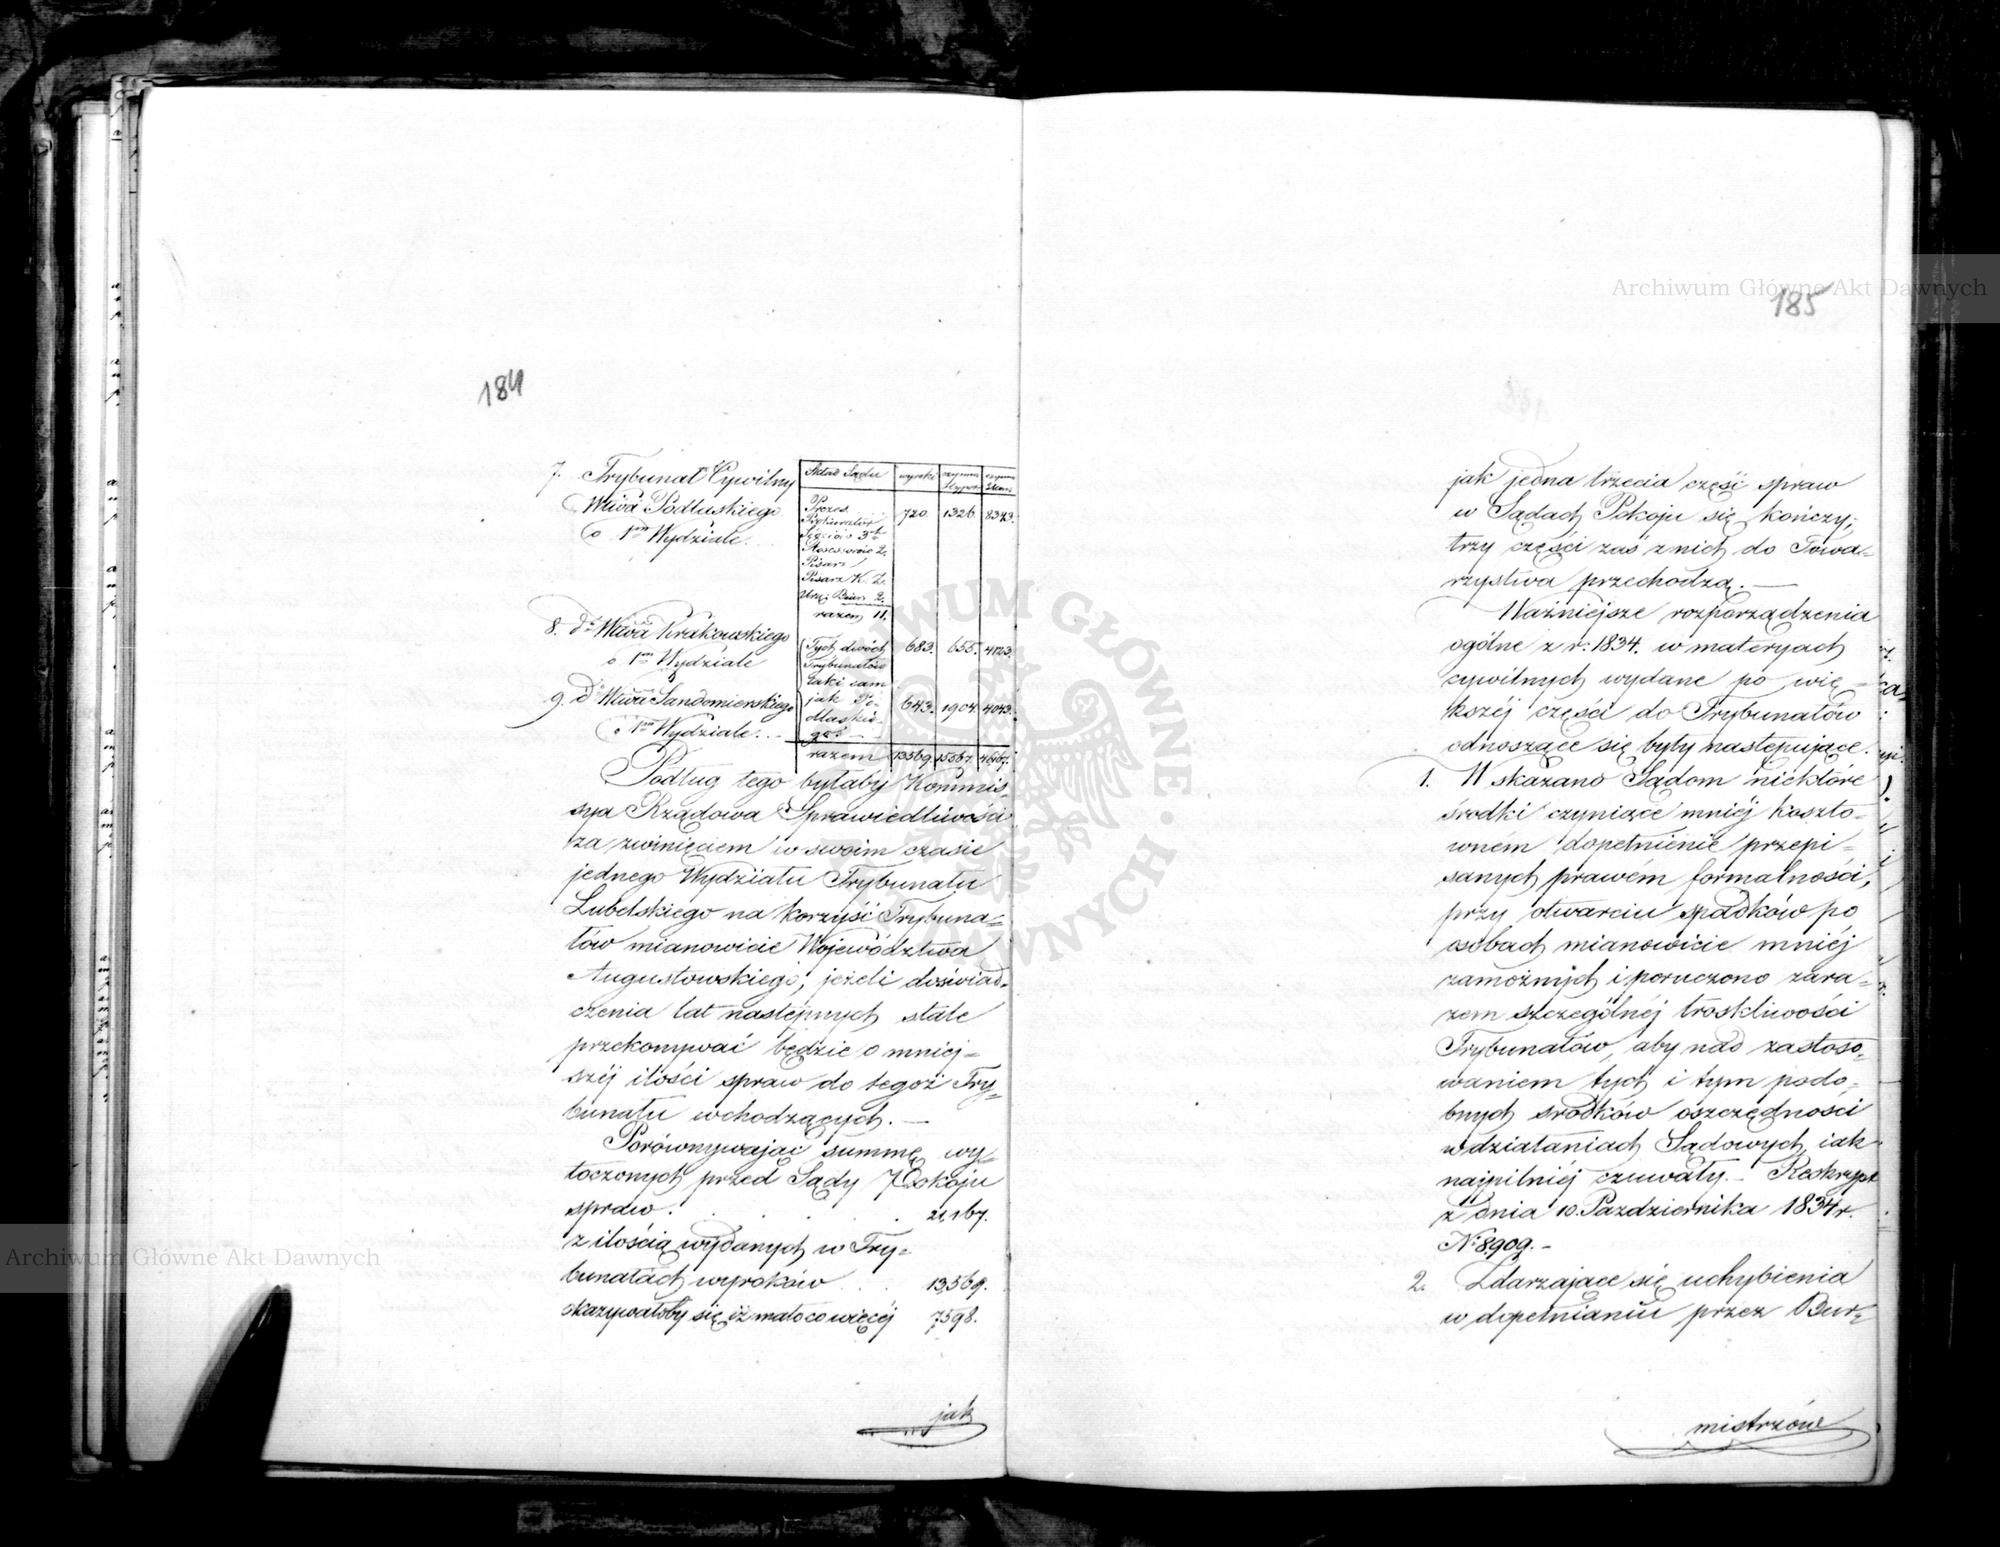 184
7. Trybunał Cywilny
Wtwa Podlaskiego
o 1m Wydziale.
Skład Sądu wyroki czynno. Hypot.
Prezes 720. 1326. 8343.
Prokurator
Sędziów 3ch
Assessorów 2.
Pisarz 1
Pisarz K. Z.
2.
razem 11.
8. do Wtwa Krakowskiego
o 1m Wydziale
Tych dwóch 683. 655. 4123.
Trybunałów
taki sam
9. do Wtwa Sandomierskiego
jak Po- 643. 1904. 4043.
dlaskie-
o 1m Wydziale.
go
razem 13569.
Podług tego byłaby Kommis-
sya Rządowa Sprawiedliwości
za zwinięciem w swoim czasie
jednego Wydziału Trybunału
Lubelskiego na korzyść Trybuna-
łów mianowicie Województwa
Augustowskiego, jeżeli doświad-
czenia lat następnych stale
przekonywać będzie o mniej-
széj ilości spraw do tegoż Try-
bunału wchodzących. —
Porównywając summę wy-
toczonych przed Sądy Pokoju
spraw. . . . . 21,167.
z ilością wydanych w Try-
bunałach wyroków . . . 13,569.
okazywałoby się iż mało co więcéj 7598.
jak
185
jak jedna trzecia część spraw
w Sądach Pokoju się kończy;
trzy części zaś z nich do Towa-
rzystwa przechodzą. —
Ważniejsze rozporządzenia
ogólne z r: 1834. w materyach
cywilnych wydane po wię-
kszéj części do Trybunałów
odnoszące się były następujące.
1. Wskazano Sądom niektóre
środki czyniące mniéj koszto-
wném dopełnienie przepi-
sanych prawém formalności,
przy otwarciu spadków po
osobach mianowicie mniéj
zamożnych i poruczono zara-
zem szczególnéj troskliwości
Trybunałów, aby nad zastoso-
waniem tych i tym podo-
bnych srodków oszczędności
w działaniach Sądowych, jak
najpilniéj czuwały. — Reskrypt
z dnia 10. Pazdziernika 1834 r.
No 8,909. —
2. Zdarzające się uchybienia
w dopełnianiu przez Bur-
mistrzów
Archiwum Główne Akt Dawnych
Archiwum Główne Akt Dawnych